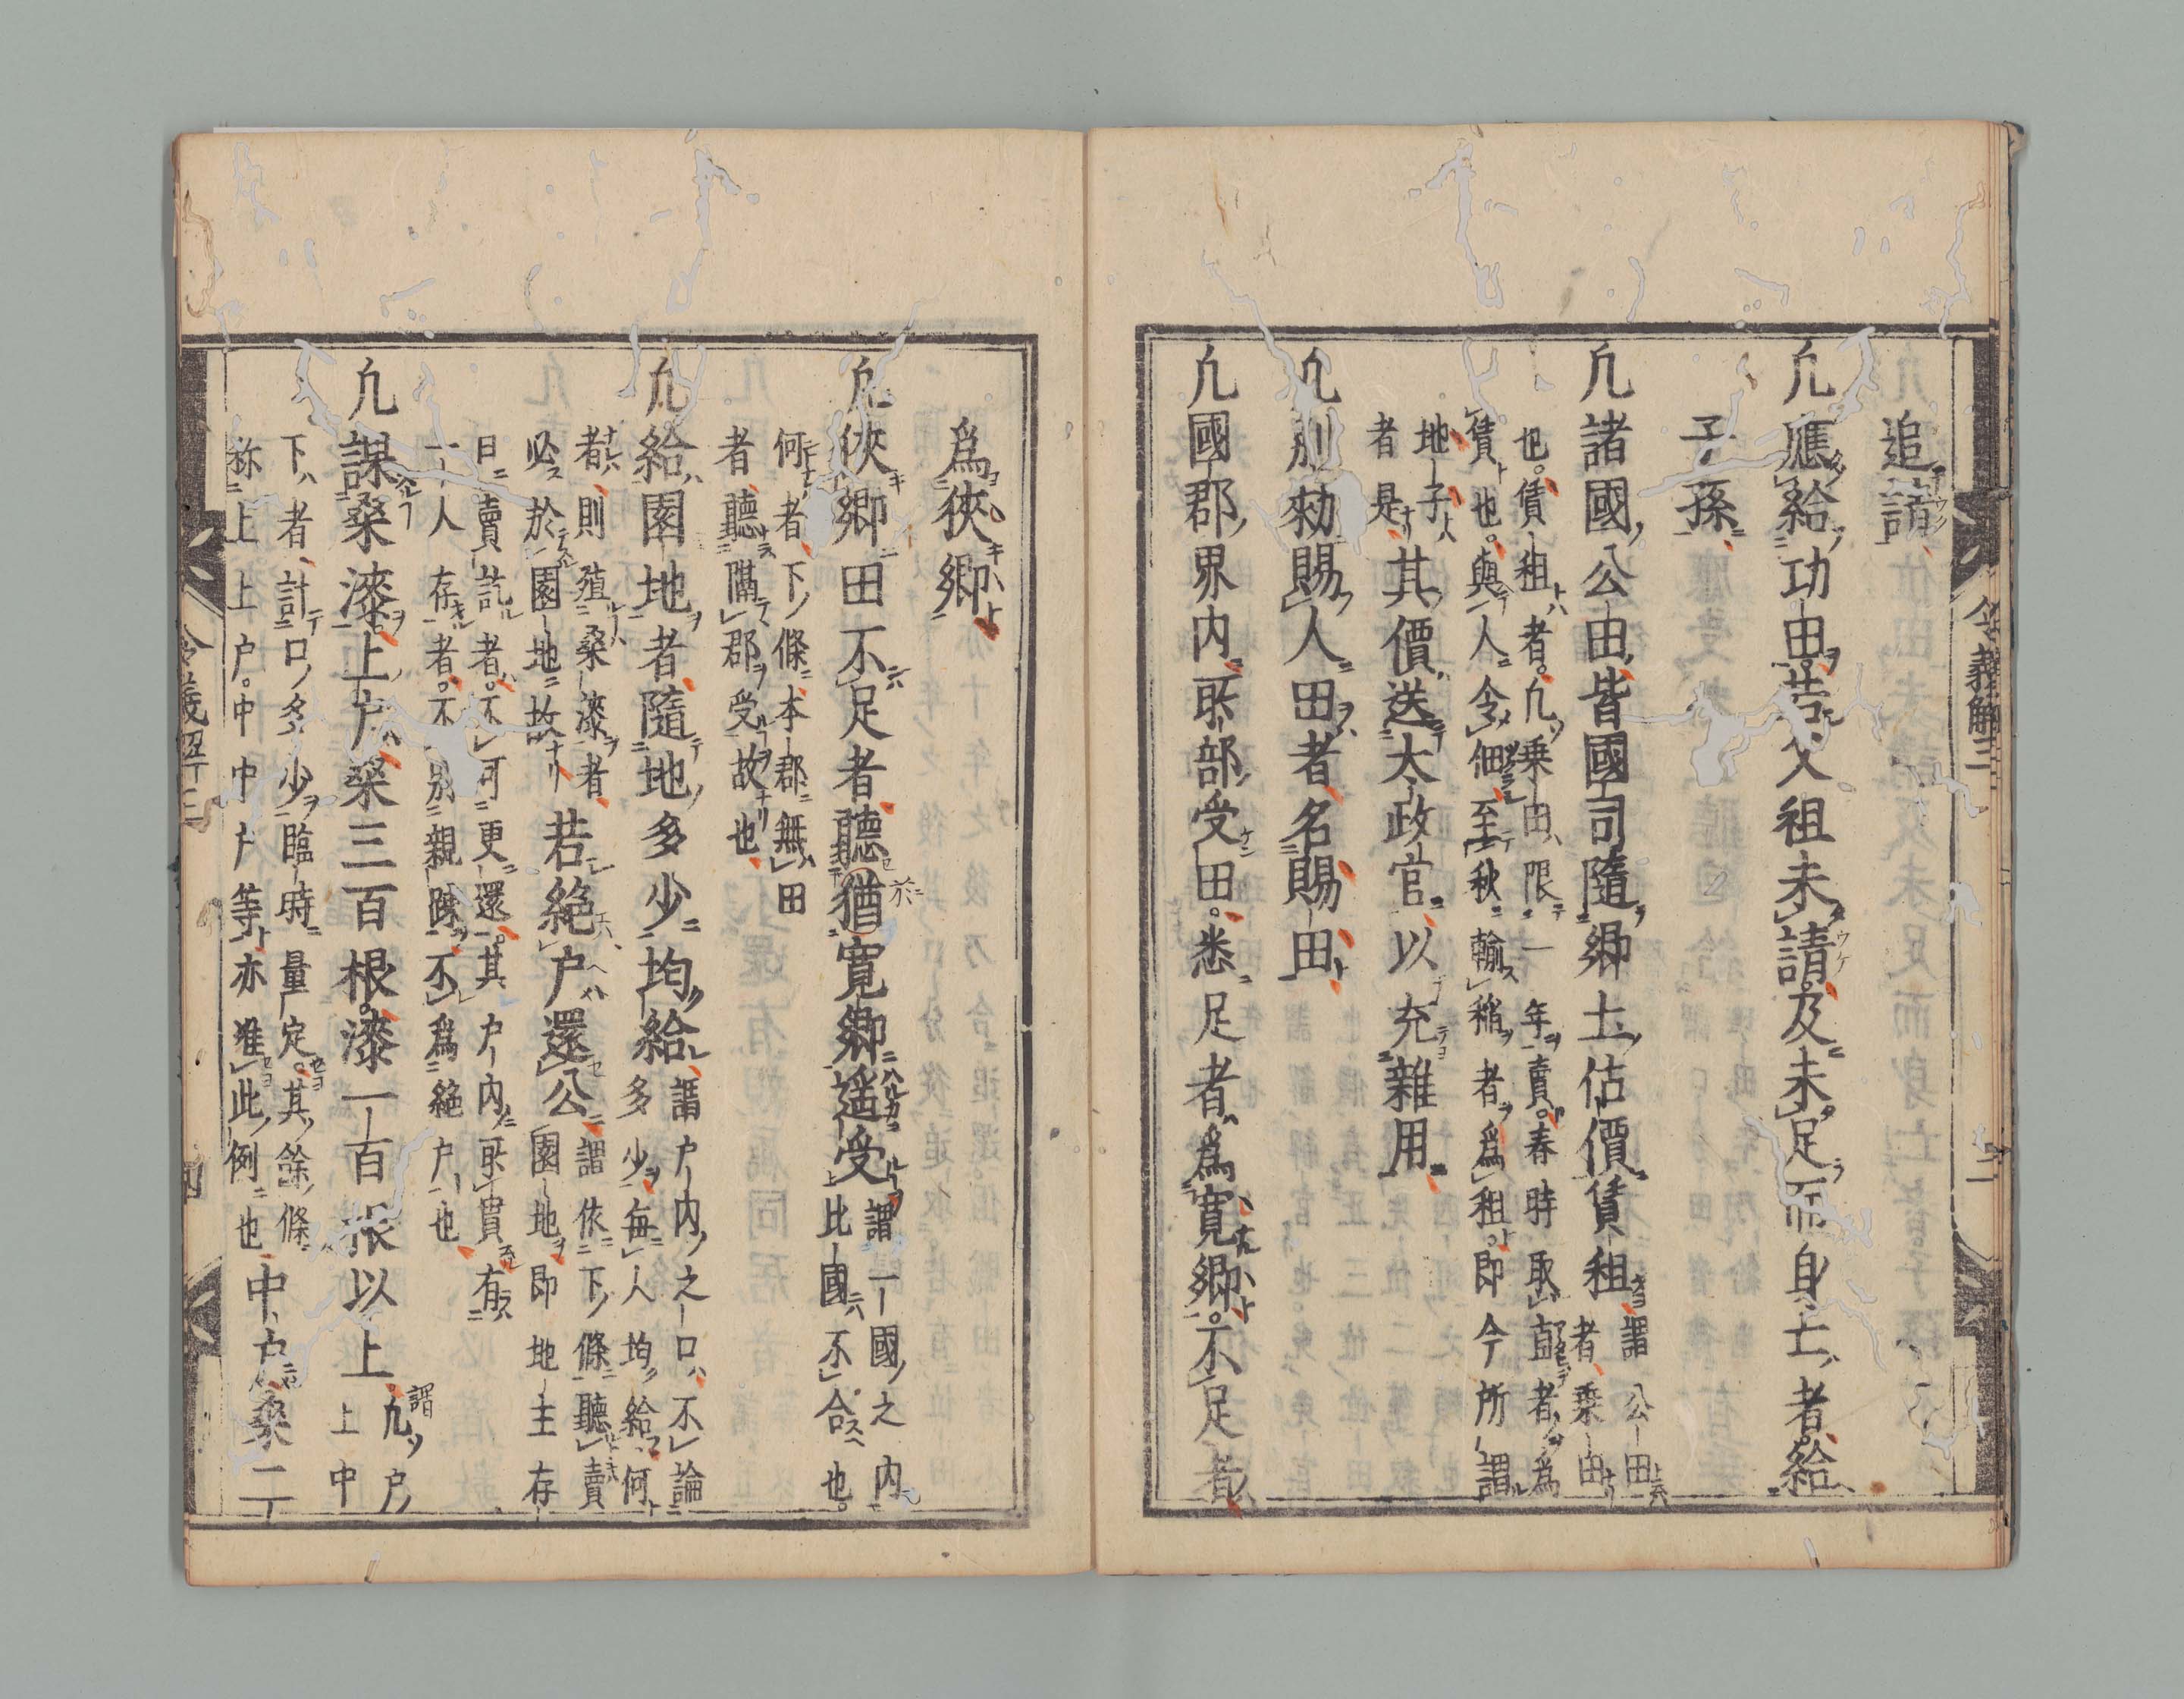 追請
凢應給功田若父祖未請及未足而身亡者給
子孫
凢諸國公田皆國司隨鄉土估價賃租謂公田
者乗田
也賃租者凢乗田限一年賣春時取直者為
賃也與人令佃至秋輸稲者為租即今所謂
地子
者是其價送太政官以充雜用
凢別勑賜人田者名賜田
凢國郡界内所部受田悉足者為寛鄉不足者
令義解三
為狹鄉
凢狹鄉田不足者聽於猶寛鄉遥受謂一國之内
比國不合也
何者下條本郡無田
者聽隔郡受故也
凢給園地者隨地多少均給謂戸内之口不論
多少毎人均給何
者則殖桒漆者
必於園地故若絶戸還公謂依下條聽賣
園地即地主存
日賣訖者不可更還其戸内所貫有
一人存者不別親踈不為絶戸也
凢課桒漆上戸桒三百根漆一百根以上謂
凢戸
上中
下者計口多少臨時量定其餘條
称上上戸中中戸等亦准此例也中戸桒二
令義解三
四